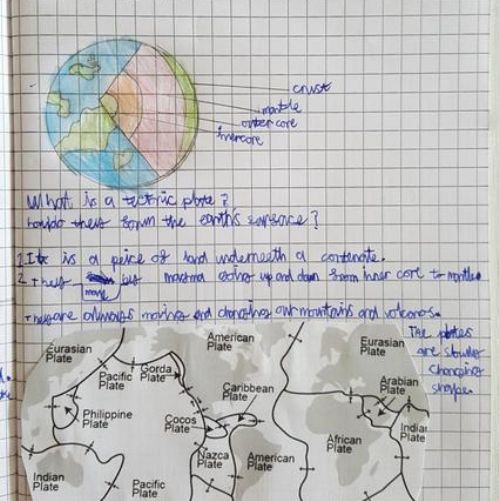 crust
mantle
outer core
inner core
What is a tectonic plate?
how do they form the earth's surface?
1. It is a peice of land underneeth a contenate.
2. They move by magma going up and down from inner core to mantle.
They are always moving and changing our mountains and volcanos.
The plates
are slowly
changing
shape.
Eurasian
Plate
American
Plate
Eurasian
Plate
Pacific
Plate
Gorda
Plate
Caribbean
Plate
Arabian
Plate
Philippine
Plate
Cocos
Plate
Indian
Plate
Nazca
Plate
American
Plate
African
Plate
Indian
Plate
Pacific
Plate